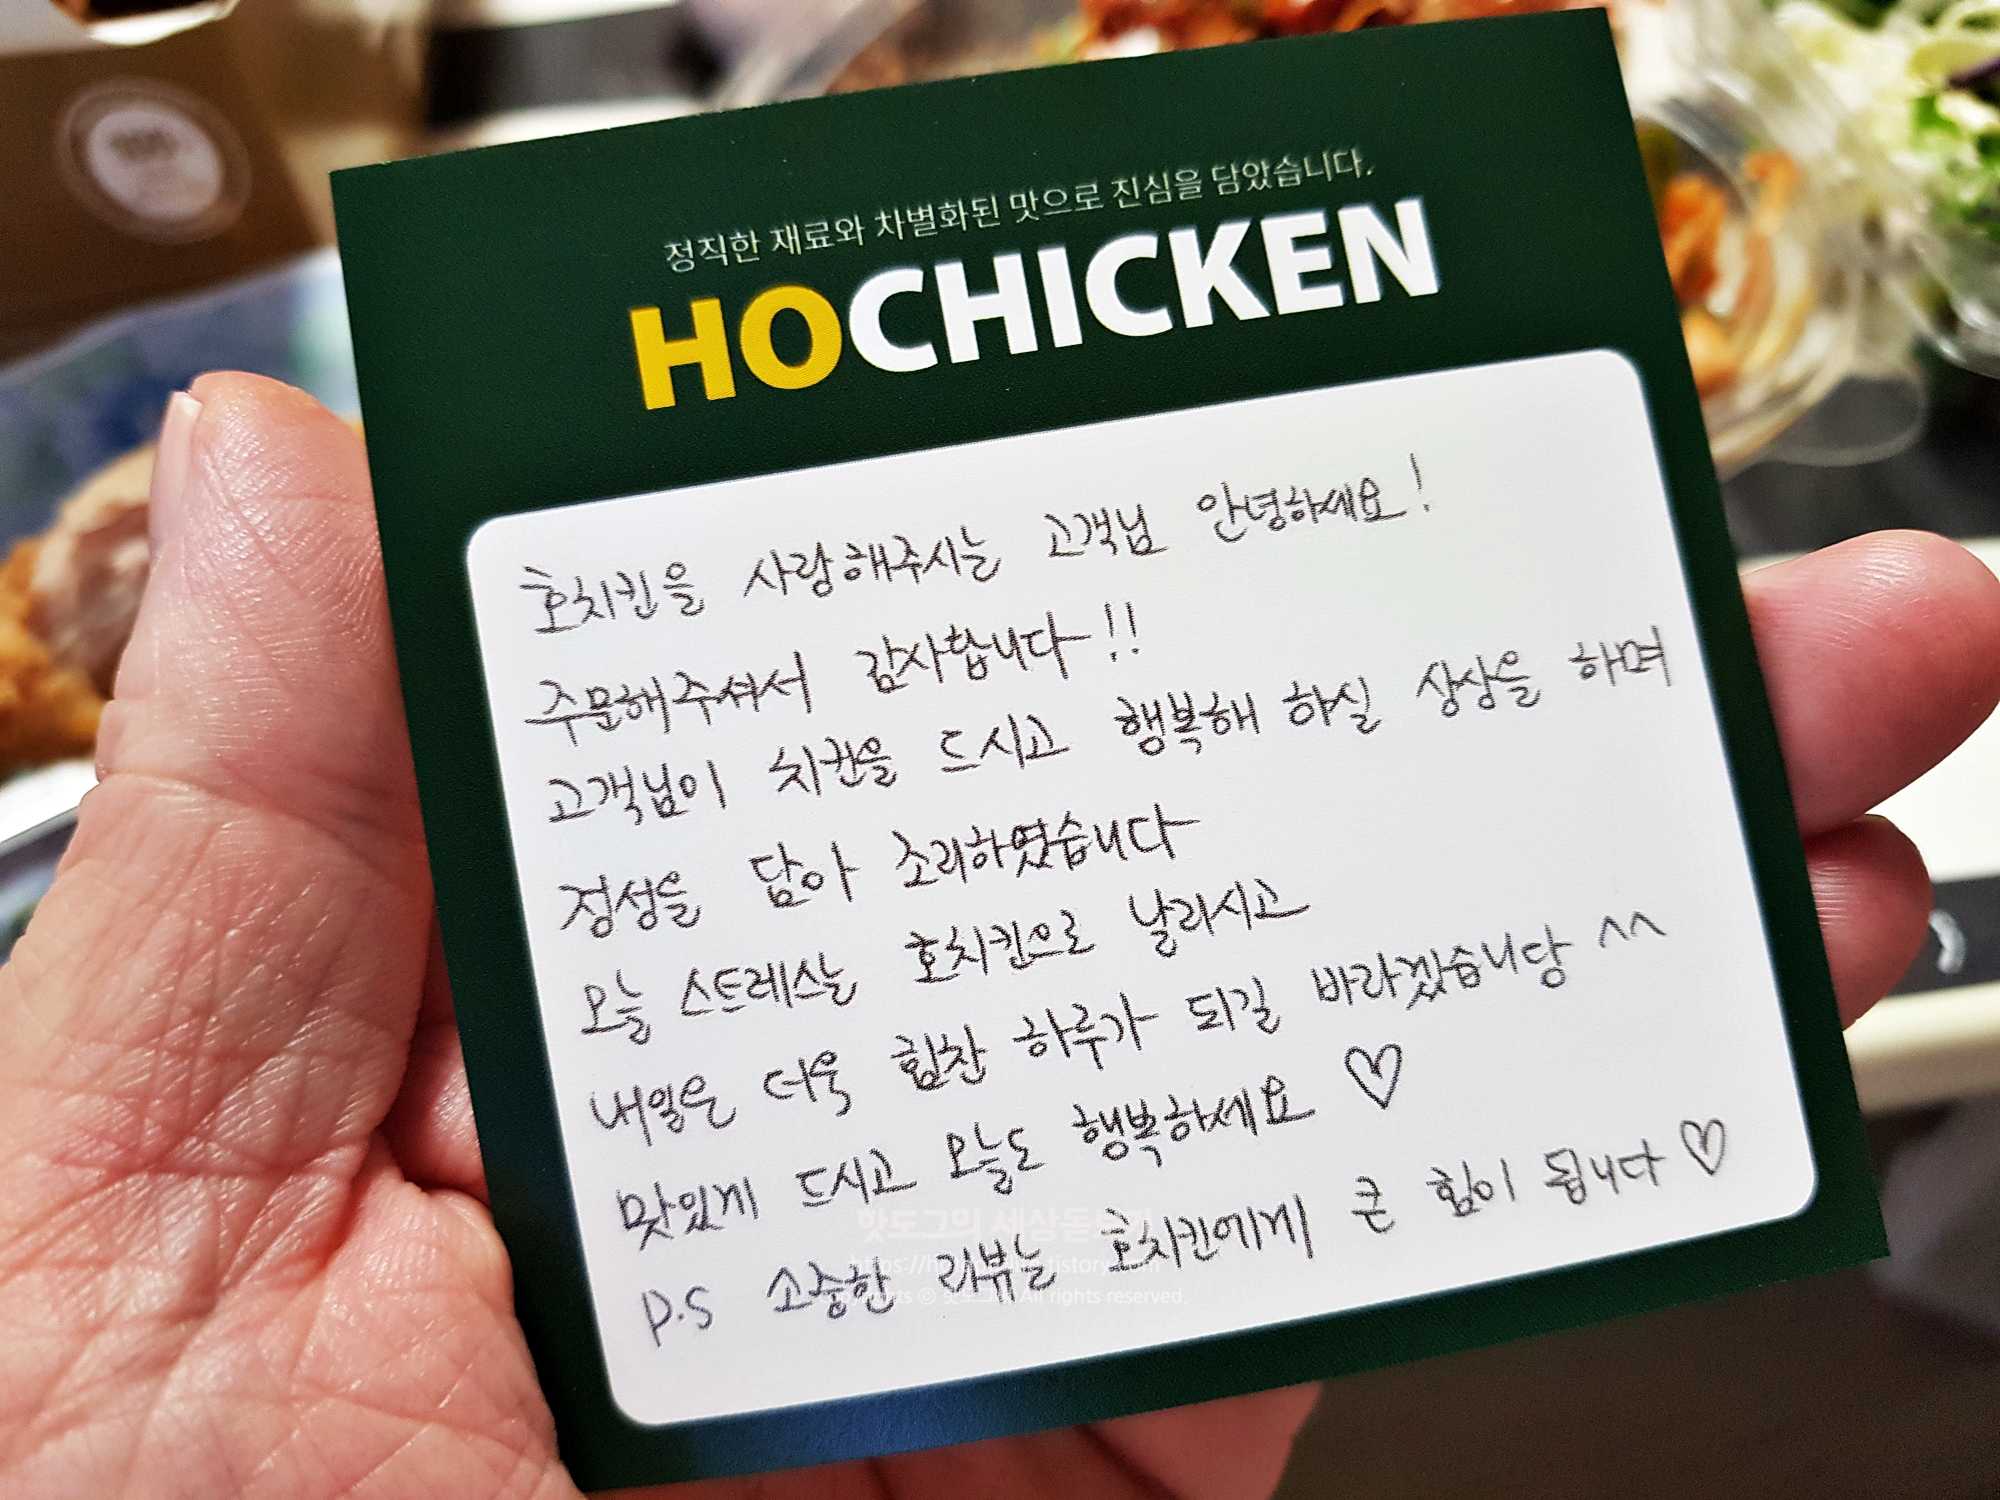 정직한 재료와 차별화된 맛으로 진심을 담았습니다.
HOCHICKEN
호치킨을 사랑해주시는 고객님 안녕하세요!
주문해주셔서 감사합니다!!
고객님이 치킨을 드시고 행복해 하실 상상을 하며
정성을 담아 조리하였습니다
오늘 스트레스는 호치킨으로 날리시고
내일은 더욱 힘찬 하루가 되길 바라겠습니당 ^^
맛있게 드시고 오늘도 행복하세요 ♡
P.S 소중한 리뷰는 호치킨에게 큰 힘이 됩니다 ♡
핫도그의 세상돋보기
All rights reserved.